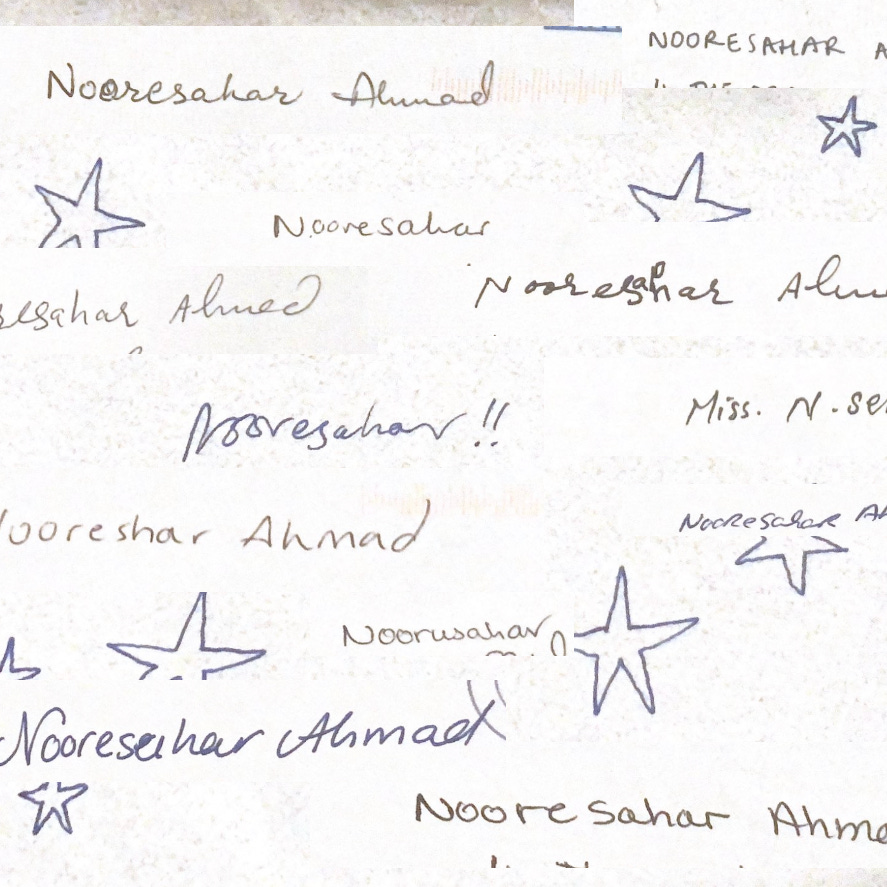 NOORESAHAR A
Nooresahar Ahmad
Nooresahar
resahar Ahmed
Nooresahar Ahm
Nooresahar !!
Miss. N. se
Nooreshar Ahmad
Nooresahar Ah
Noorusahar
Nooresahar Ahmad
Nooresahar Ahma